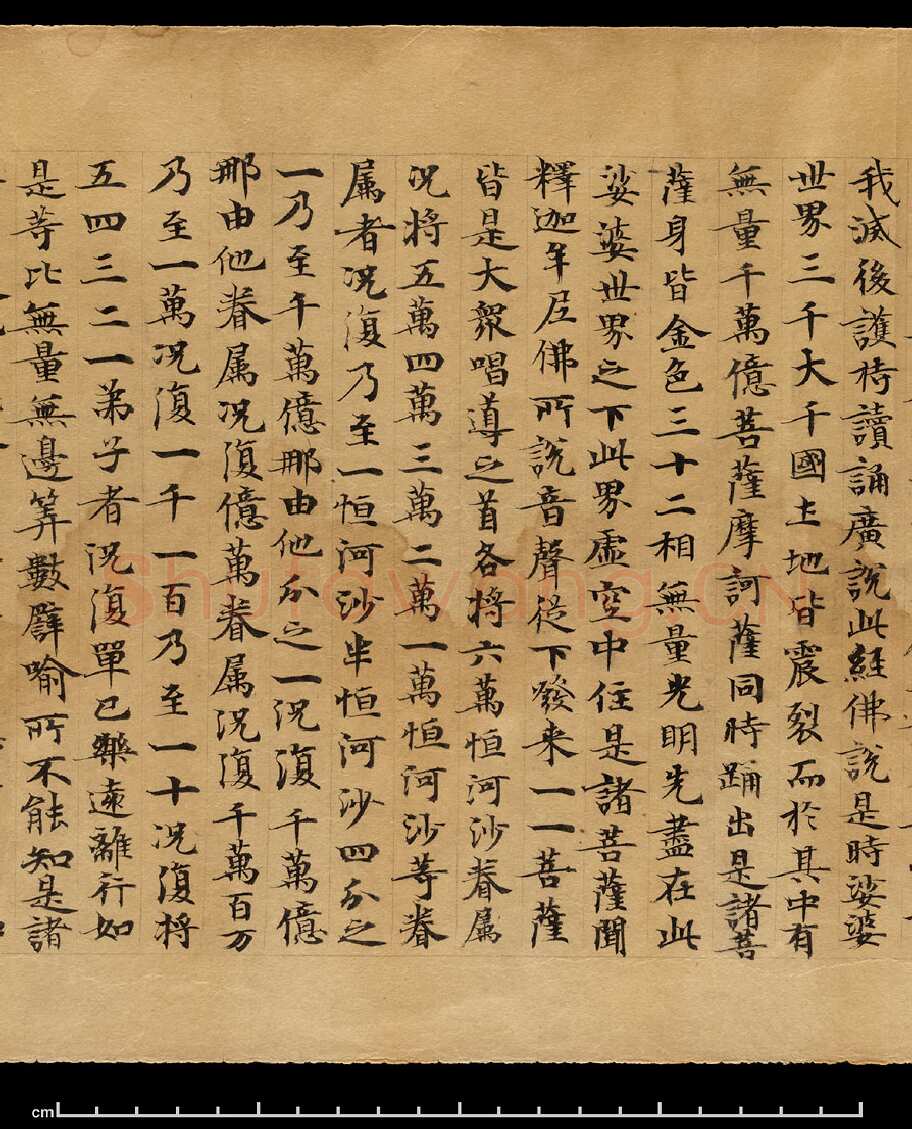 我滅後護持讀誦廣說此經佛說是時娑婆
世界三千大千國土地皆震裂而於其中有
無量千萬億菩薩摩訶薩同時踊出是諸菩
薩身皆金色三十二相無量光明先盡在此
娑婆世界之下此界虛空中住是諸菩薩聞
釋迦牟尼佛所說音聲從下發来一一菩薩
皆是大衆唱導之首各將六萬恒河沙眷属
况將五萬四萬三萬二萬一萬恒河沙等眷
属者况復乃至一恒河沙半恒河沙四分之
一乃至千萬億那由他分之一况復千萬億
那由他眷属况復億萬眷属况復千萬百万
乃至一萬况復一千一百乃至一十况復將
五四三二一弟子者况復單己樂遠離行如
是等比無量無邊筭數譬喻所不能知是諸
Shufawang.CN
cm